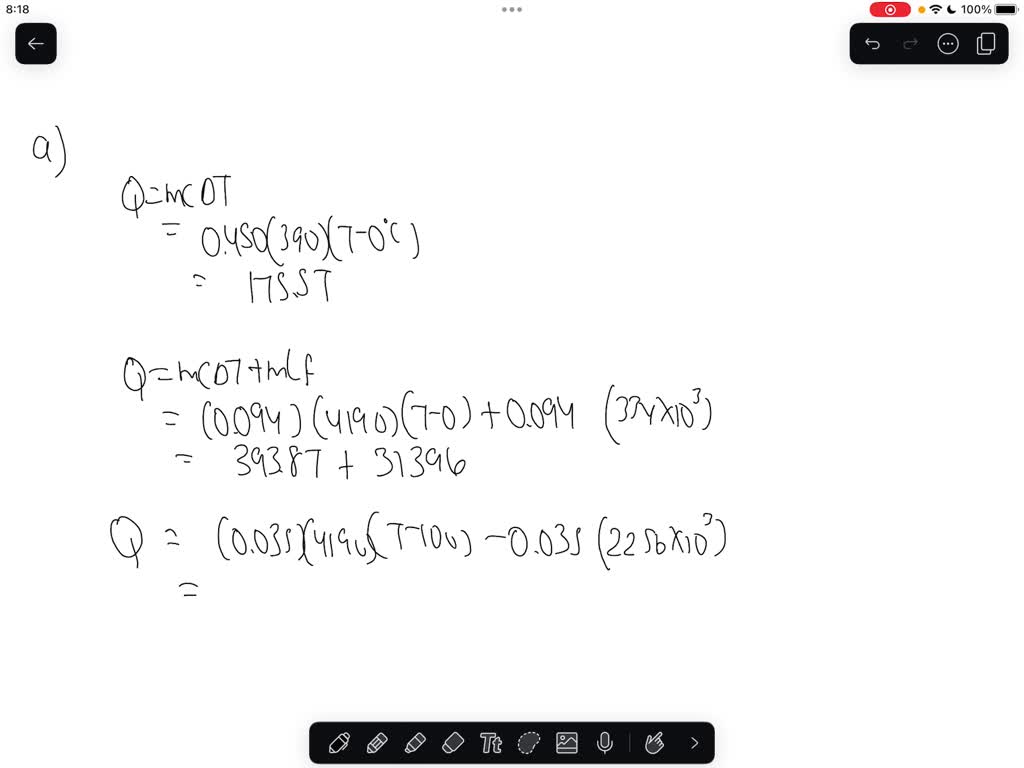 8:18
100%
a)
Q=mcΔT
= 0.450(390)(T-0°C)
= 175.5T
Q=mcΔT+mLf
= (0.094)(4190)(T-0)+0.094 (334×10³)
= 393.8T + 31396
Q = (0.035)(4190)(T-100) -0.035 (2256×10³)
=
Tt